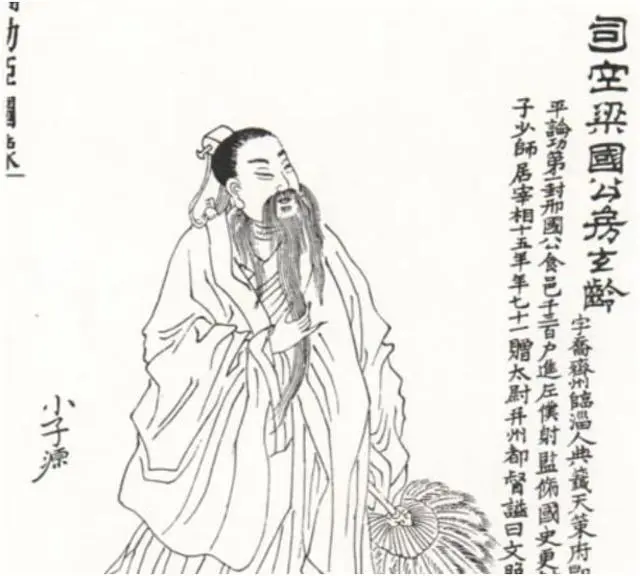 司空梁國公房玄齡
字喬齊州臨淄人典籤天策府
平論功第一封邢國公食邑千三百户進左僕射監脩國史更
子少師居宰相十五年年七十一贈太尉并州都督謚曰文昭
小子源
功臣圖